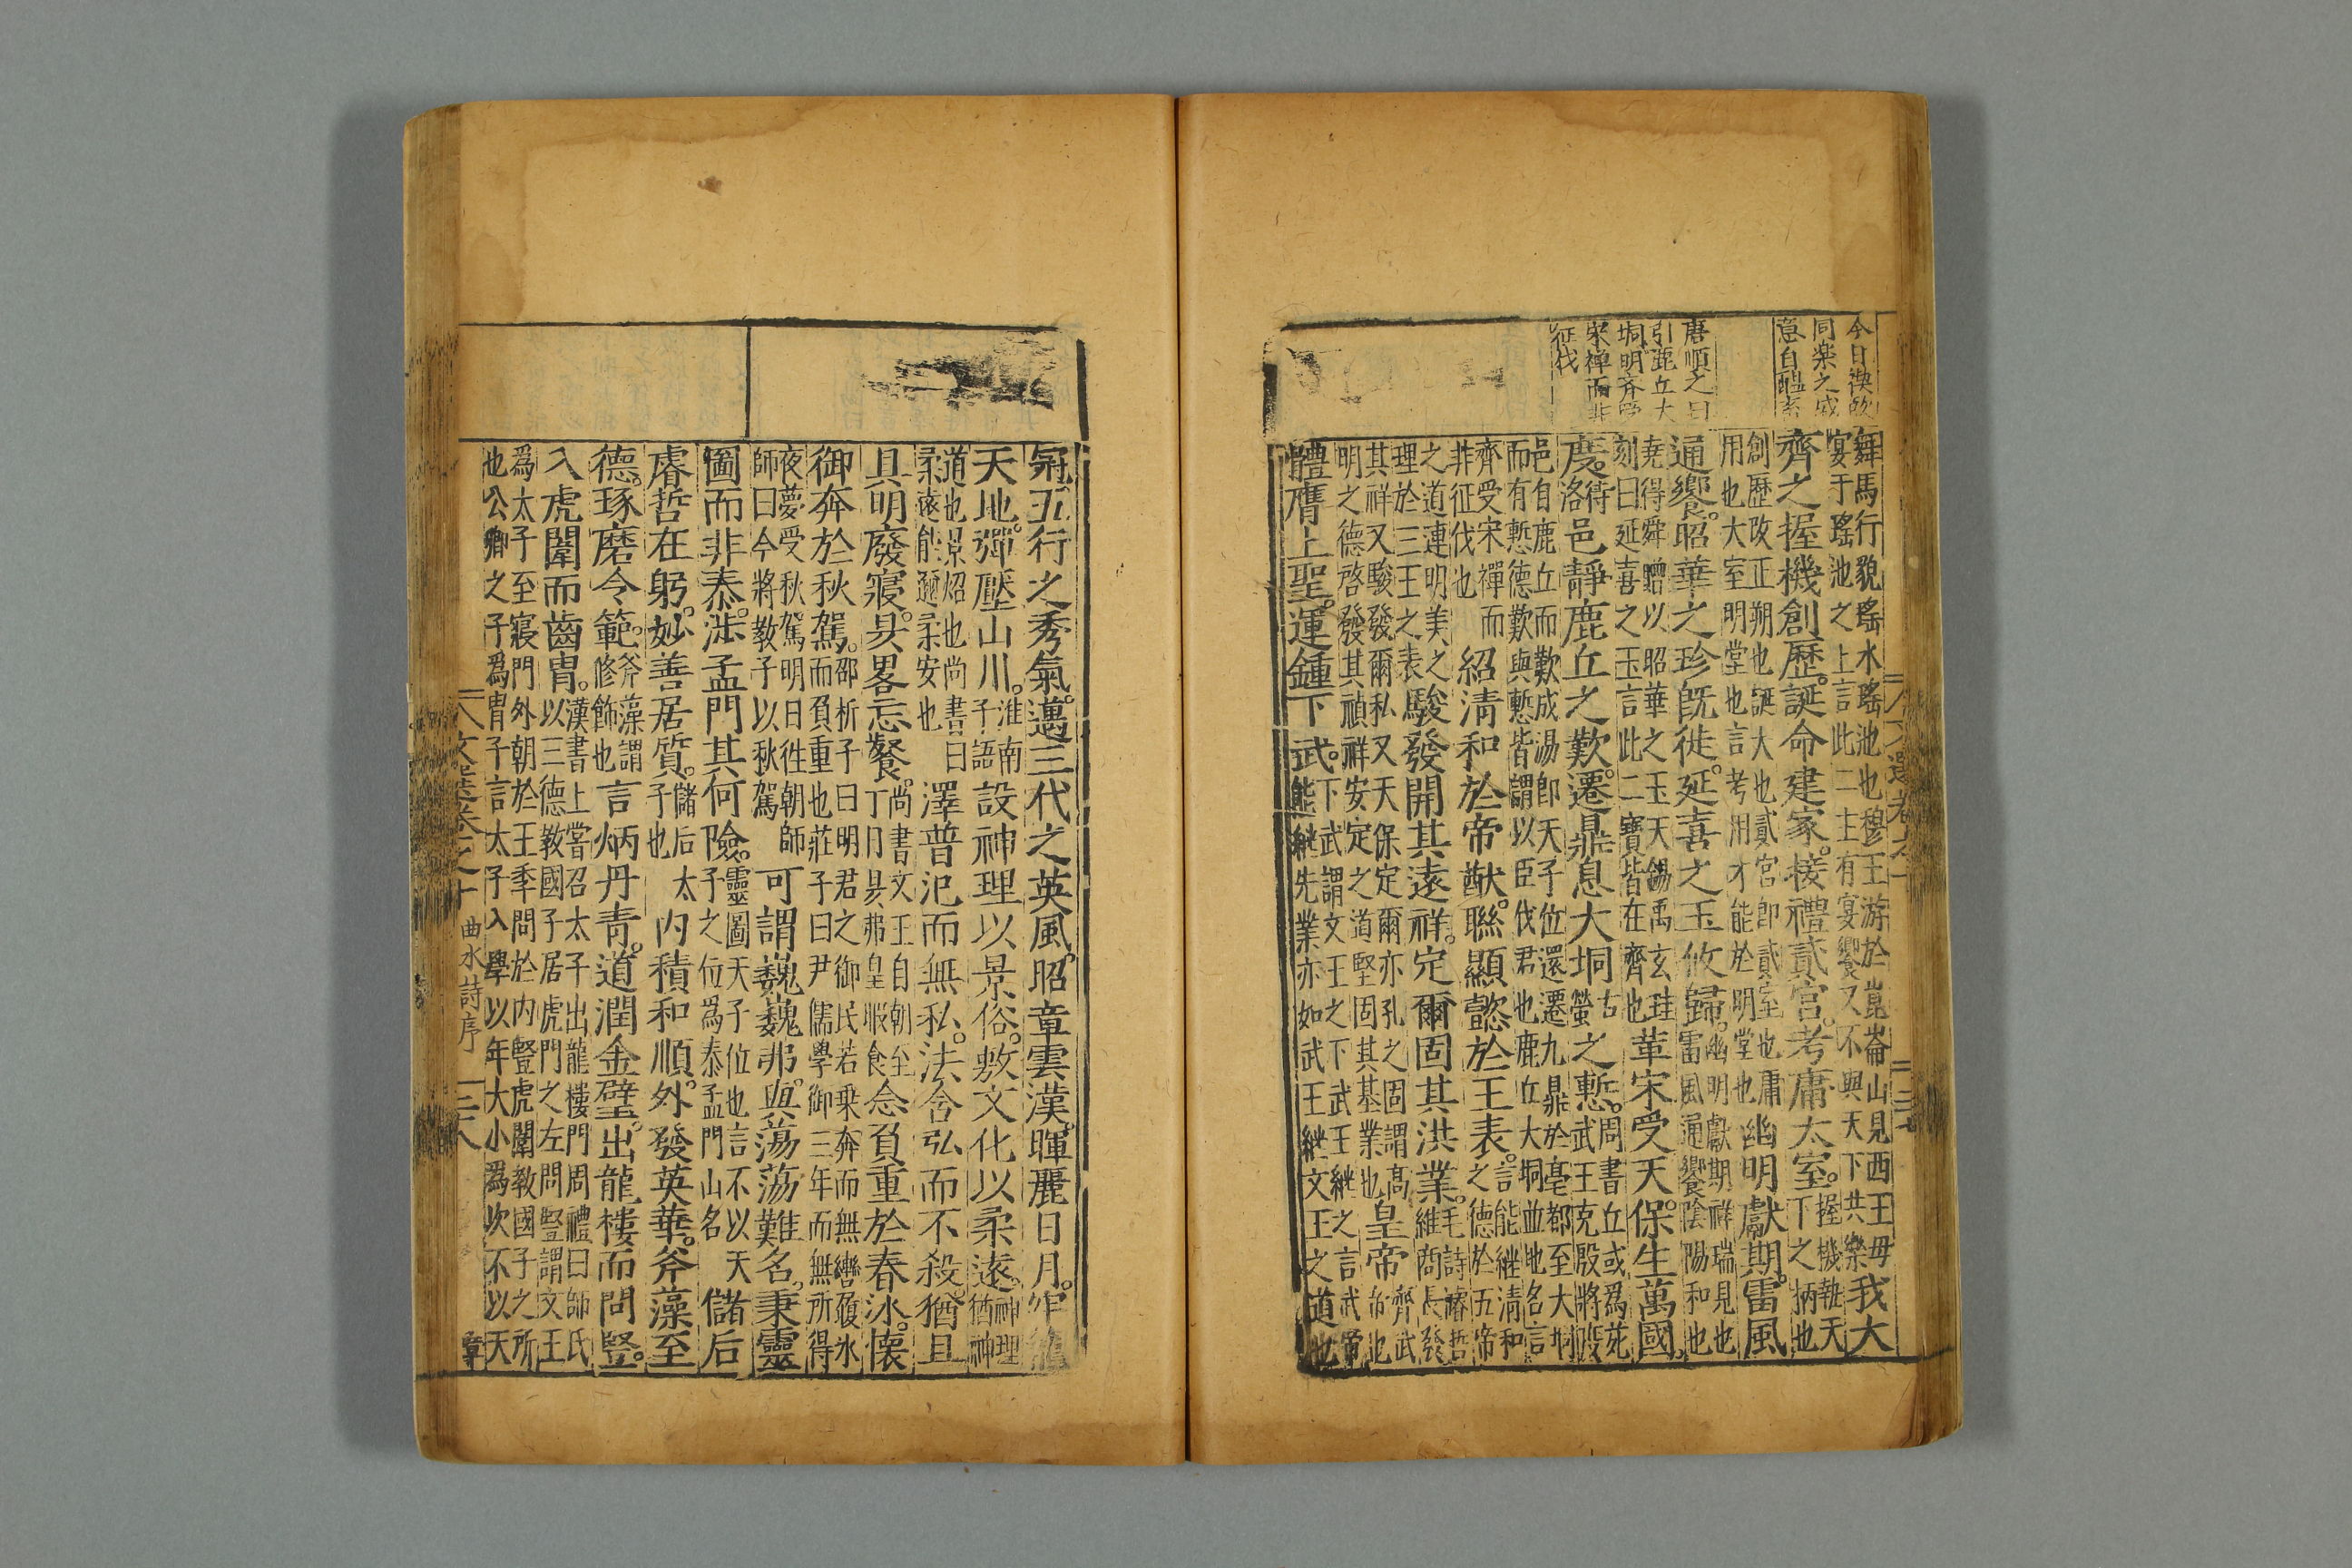 今日禊飲
同樂之盛
意自醞
唐順之曰
引鹿丘大
坰明齊受
宋禪而非
征伐
舞馬行貌瑤水瑤池也穆王游於崑崙山見西王母宴于瑤池之上言此二主有宴饗又不與天下共樂我大
齊之握機創歷。誕命建家。接禮貳宮。考庸太室。握機執天下之柄也
創歷改正朔也誕大也貳宮卽貳室也庸用也大室明堂也言考用才能於明堂也幽明獻期。雷風
通饗。昭華之珍旣徙。延喜之玉攸歸。幽明獻期祥瑞見也雷風通饗陰陽和也
堯得舜贈以昭華之玉天錫禹玄珪刻曰延喜之玉言此二寶皆在齊也革宋受天。保生萬國。
度待洛邑靜鹿丘之歎。遷鼎息大坰古螢之慙。周書丘或爲苑武王克殷將段
邑自鹿丘而歎成湯卽天子位還遷九鼎於亳都至大坰而有慙德歎與慙皆謂以臣伐君也鹿丘大坰並地名言
齊受宋禪而非征伐也紹淸和於帝猷。聯顯懿於王表。言能繼淸和之德於五帝
之道連明美之理於三王之表駿發開其遠祥。定爾固其洪業。毛詩濬哲維商長發
其祥又駿發爾私又天保定爾亦孔之固謂高明之德啓發其禎祥安定之道堅固其基業也皇帝齊武帝也
體膺上聖。運鍾下武。下武謂文王之下武王継之言武帝能継先業亦如武王継文王之道也
冠五行之秀氣。邁三代之英風。昭章雲漢。暉麗日月。牢籠
天地。彈壓山川。淮南子語設神理以景俗。敷文化以柔遠。神理猶神
道也景炤也尚書曰柔遠能邇柔安也澤普汜而無私。法含弘而不殺。猶且
具明廢寢。昃畧忘餐。尚書文王自朝至丁日昃弗皇暇食念負重於春氷。懷
御奔於秋駕。邵析子曰明君之御民若乗奔而無轡履氷而負重也莊子曰尹儒學御三年而無所得
夜夢受秋駕明日徃朝師師曰今將教子以秋駕可謂巍巍弗與。蕩蕩難名。秉靈
圖而非泰。涉孟門其何險。靈圖天子位也言不以天子之位爲泰孟門山名儲后
睿哲在躬。妙善居質。儲后太子也內積和順。外發英華。斧藻至
德。琢磨令範。斧藻謂修飾也言炳丹青。道潤金璧。出龍樓而問豎。
入虎闈而齒胄。漢書上嘗召太子出龍樓門周禮曰師氏以三德教國子居虎門之左問豎謂文王
爲太子至寢門外朝於王季問於內豎虎闈教國子之所也公卿之子爲胄子言太子入學以年大小爲次不以天
文選卷之十 曲水詩序 三八 章